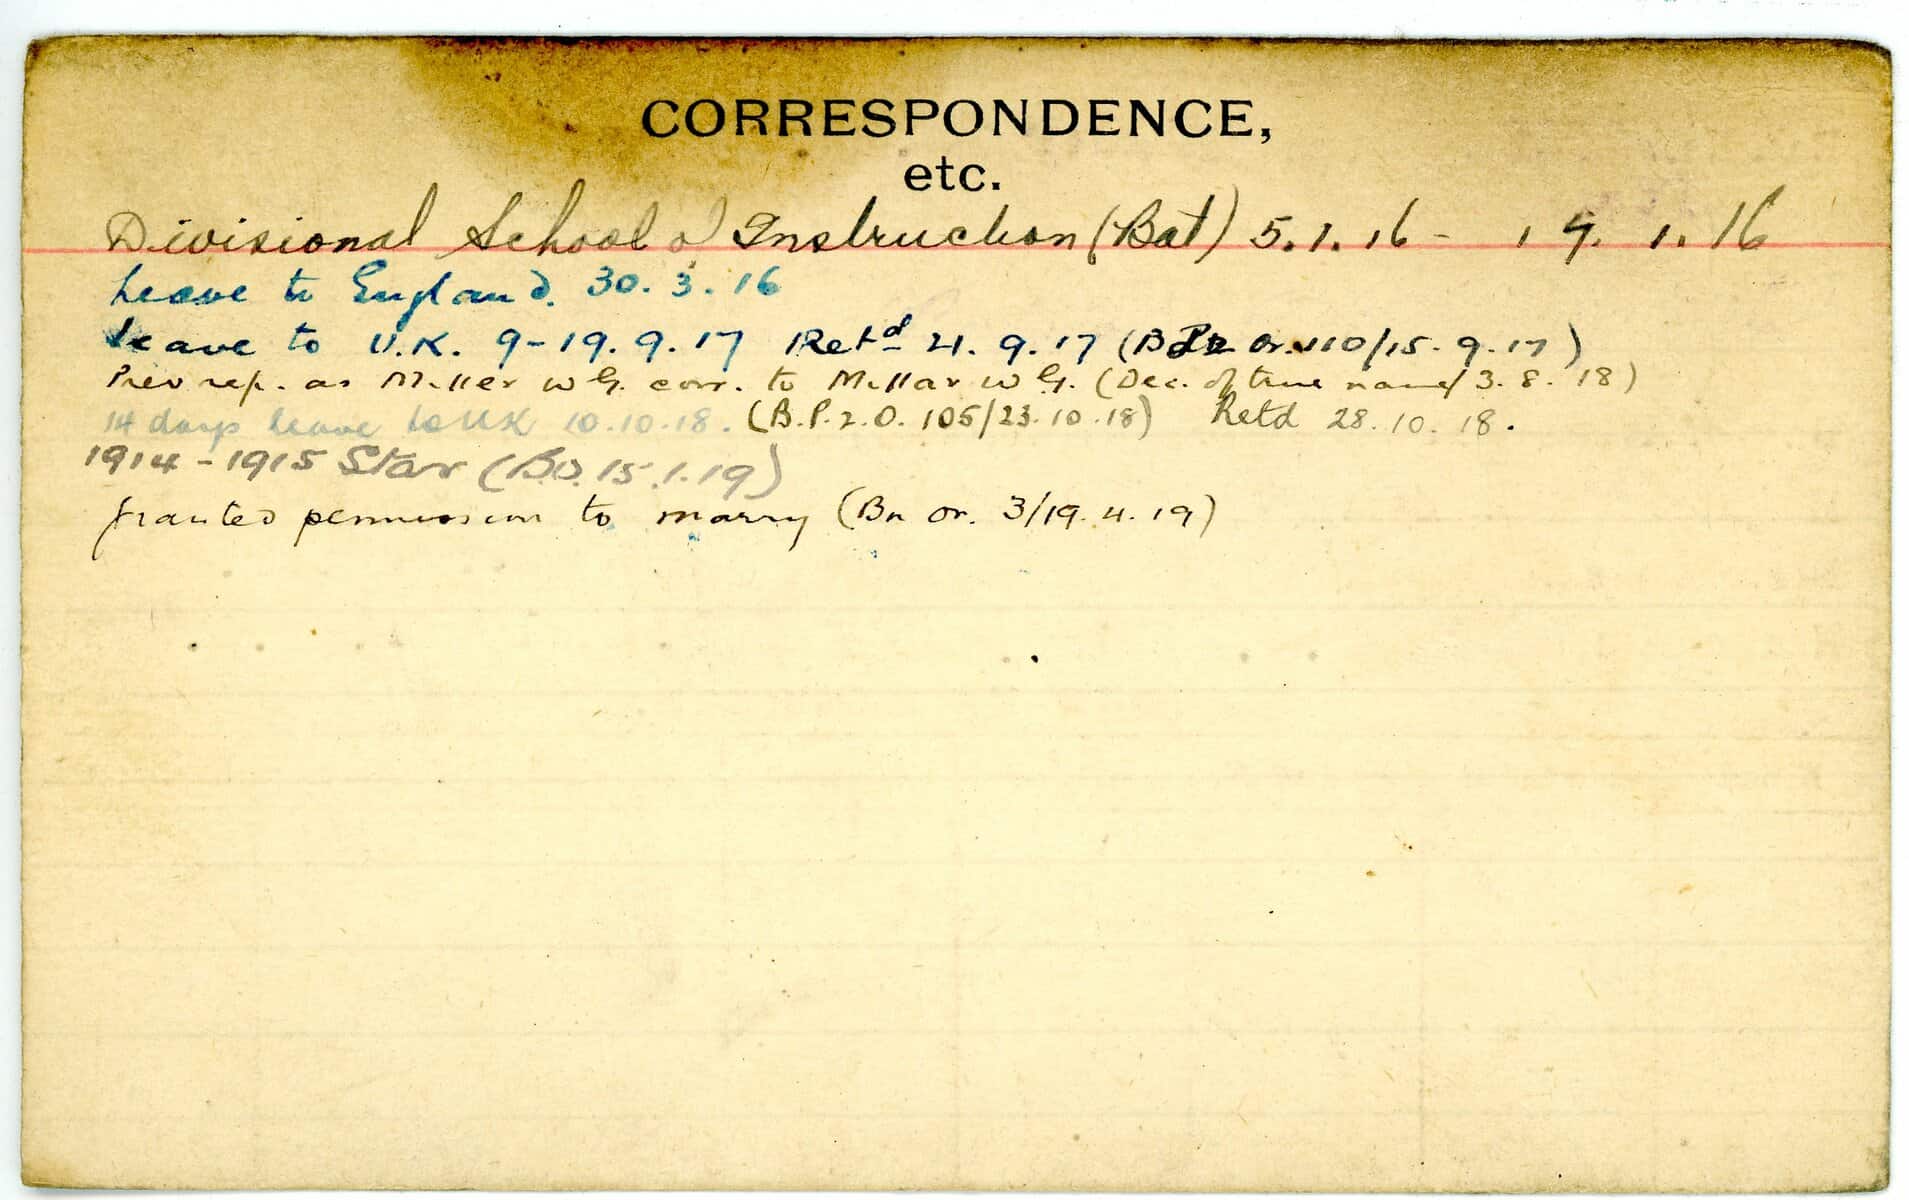 CORRESPONDENCE,
etc.
Divisional School of Instruction (Bat) 5.1.16 - 19. 1. 16
Leave to England. 30. 3. 16
Leave to U.K. 9-19. 9. 17 Retd 21. 9. 17 (Or. 110/15. 9. 17)
Prev rep. as Miller W G. corr. to Millar W G. (Dec. of true name/3. 8. 18)
14 days leave to UK 10.10.18. (B.P.2.O. 105/23.10.18) Retd 28.10.18.
1914-1915 Star (B.O. 15.1.19)
granted permission to marry (Bn Or. 3/19.4.19)